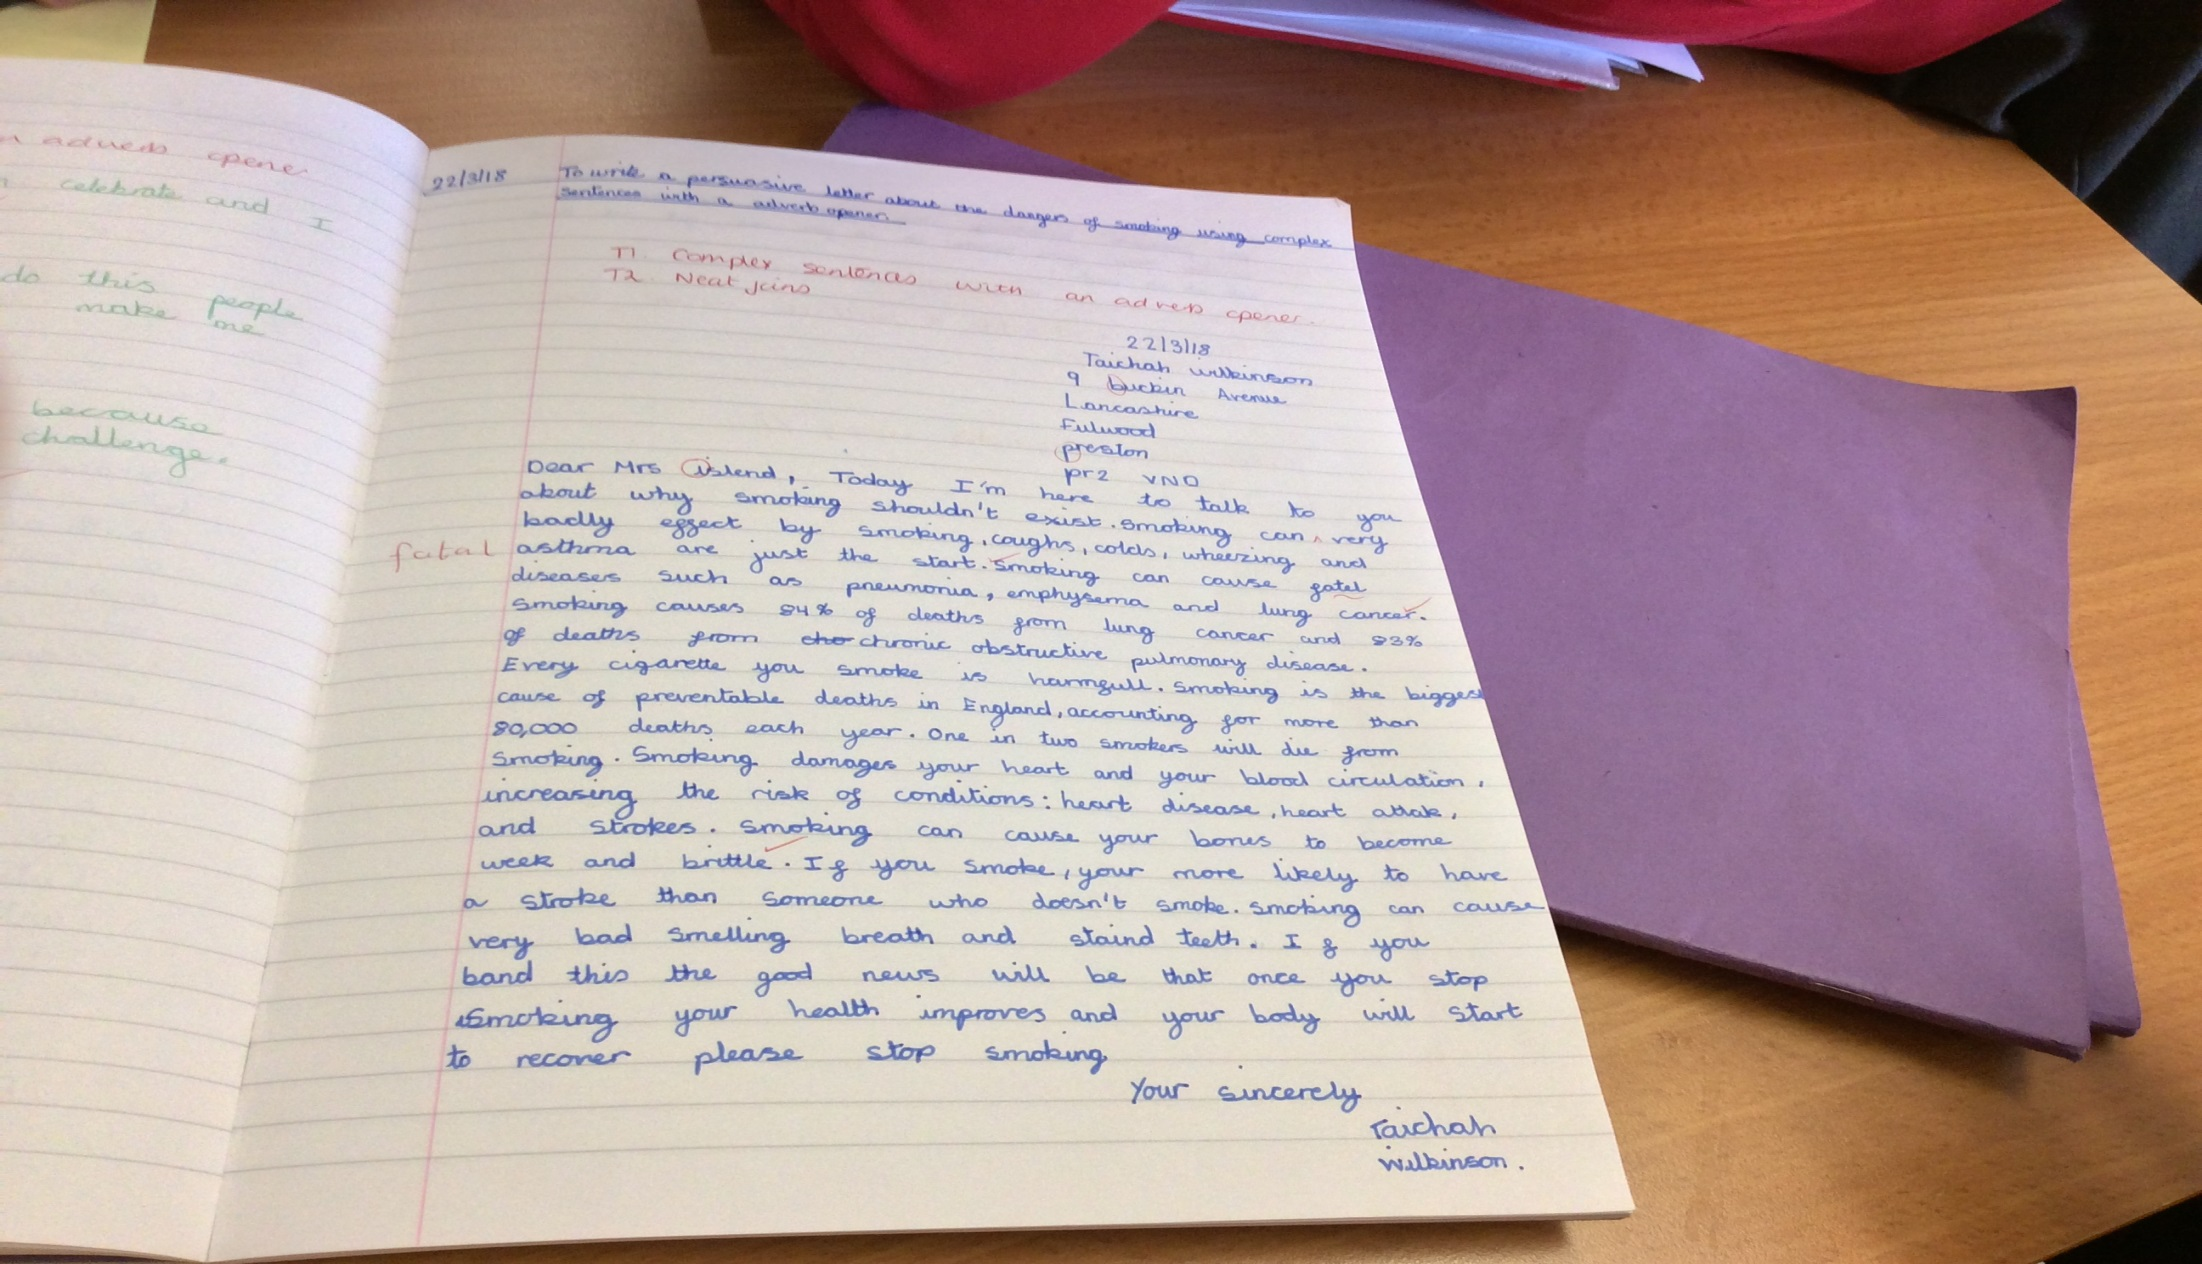 adverb opener
celebrate and I
do this people
make me
because
challenge.
22/3/18
To write a persuasive letter about the dangers of smoking using complex
sentences with a adverb opener.
T1 Complex sentences with an adverb opener.
T2 Neat joins
22/3/18
Taichah wilkinson
9 buckin Avenue
Lancashire
Fulwood
preston
pr2 VNO
Dear Mrs islend, Today I'm here to talk to you
about why smoking shouldn't exist. Smoking can ^ very
badly effect by smoking, coughs, colds, wheezing and
fatal
asthma are just the start. Smoking can cause fatel
diseases such as pneumonia, emphysema and lung cancer.
Smoking causes 84% of deaths from lung cancer and 83%
of deaths from cho chronic obstructive pulmonary disease.
Every cigarette you smoke is harmfull. Smoking is the biggest
cause of preventable deaths in England, accounting for more than
80,000 deaths each year. One in two smokers will die from
Smoking. Smoking damages your heart and your blood circulation,
increasing the risk of conditions: heart disease, heart attak,
and strokes. Smoking can cause your bones to become
week and brittle. If you smoke, your more likely to have
a stroke than someone who doesn't smoke. Smoking can cause
very bad smelling breath and staind teeth. If you
band this the good news will be that once you stop
Smoking your health improves and your body will start
to recover please stop smoking
Your sincerely
Taichah
Wilkinson.